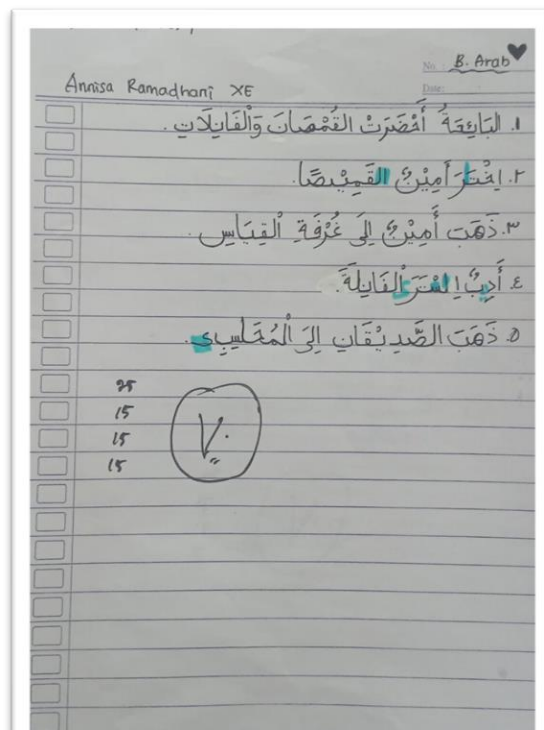 No : B. Arab
Date:
Annisa Ramadhani XE
١. البَائِعَةُ أَحْضَرَتْ القُمْصَانَ وَالْفَانِلَاتِ.
٢. اِخْتَرَ أَمِيْنٌ القَمِيْصًا.
٣. ذَهَبَ أَمِيْنٌ اِلَى غُرْفَةِ الْقِيَاسِ.
٤. أَدِبٌ الْفَانِلَةَ.
٥. ذَهَبَ الصَّدِيْقَانِ اِلَى الْمُحَاسِبِي.
25
15
15
15
٧٠